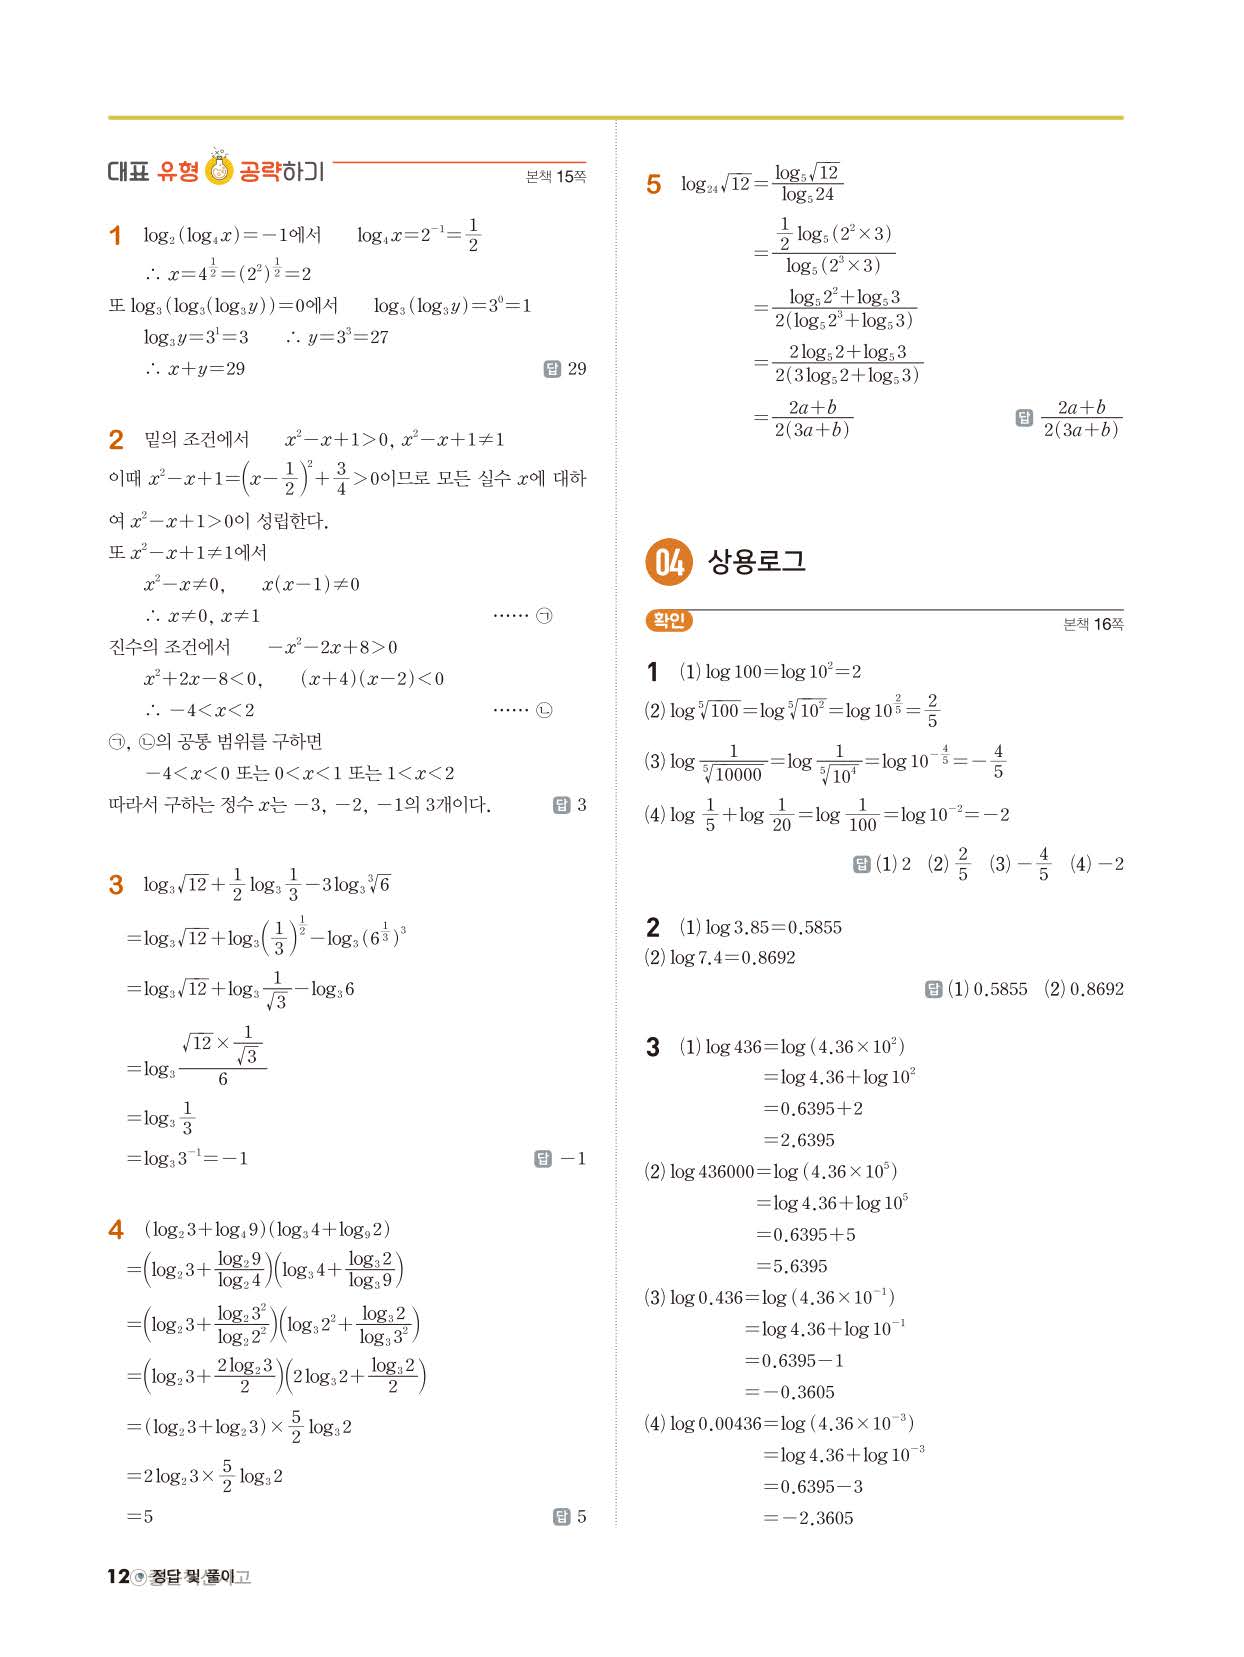 대표 유형 공략하기
본책 15쪽
1 log₂(log₄x)=-1에서 log₄x=2⁻¹=1/2
∴ x=4^(1/2)=(2²)^(1/2)=2
또 log₃(log₃(log₃y))=0에서 log₃(log₃y)=3⁰=1
log₃y=3¹=3 ∴ y=3³=27
∴ x+y=29 답 29
2 밑의 조건에서 x²-x+1>0, x²-x+1≠1
이때 x²-x+1=(x-1/2)²+3/4>0이므로 모든 실수 x에 대하
여 x²-x+1>0이 성립한다.
또 x²-x+1≠1에서
x²-x≠0, x(x-1)≠0
∴ x≠0, x≠1 …… ㉠
진수의 조건에서 -x²-2x+8>0
x²+2x-8<0, (x+4)(x-2)<0
∴ -4<x<2 …… ㉡
㉠, ㉡의 공통 범위를 구하면
-4<x<0 또는 0<x<1 또는 1<x<2
따라서 구하는 정수 x는 -3, -2, -1의 3개이다. 답 3
3 log₃√12+1/2 log₃ 1/3-3log₃∛6
=log₃√12+log₃(1/3)^(1/2)-log₃(6^(1/3))³
=log₃√12+log₃ 1/√3-log₃6
=log₃ (√12×1/√3)/6
=log₃ 1/3
=log₃3⁻¹=-1 답 -1
4 (log₂3+log₄9)(log₃4+log₉2)
=(log₂3+log₂9/log₂4)(log₃4+log₃2/log₃9)
=(log₂3+log₂3²/log₂2²)(log₃2²+log₃2/log₃3²)
=(log₂3+2log₂3/2)(2log₃2+log₃2/2)
=(log₂3+log₂3)×5/2 log₃2
=2log₂3×5/2 log₃2
=5 답 5
5 log₂₄√12=log₅√12/log₅24
=1/2 log₅(2²×3)/log₅(2³×3)
=(log₅2²+log₅3)/2(log₅2³+log₅3)
=(2log₅2+log₅3)/2(3log₅2+log₅3)
=(2a+b)/2(3a+b) 답 (2a+b)/2(3a+b)
04 상용로그
확인
본책 16쪽
1 (1) log 100=log 10²=2
(2) log ⁵√100=log ⁵√10²=log 10^(2/5)=2/5
(3) log 1/⁵√10000=log 1/⁵√10⁴=log 10^(-4/5)=-4/5
(4) log 1/5+log 1/20=log 1/100=log 10⁻²=-2
답 (1) 2 (2) 2/5 (3) -4/5 (4) -2
2 (1) log 3.85=0.5855
(2) log 7.4=0.8692
답 (1) 0.5855 (2) 0.8692
3 (1) log 436=log (4.36×10²)
=log 4.36+log 10²
=0.6395+2
=2.6395
(2) log 436000=log (4.36×10⁵)
=log 4.36+log 10⁵
=0.6395+5
=5.6395
(3) log 0.436=log (4.36×10⁻¹)
=log 4.36+log 10⁻¹
=0.6395-1
=-0.3605
(4) log 0.00436=log (4.36×10⁻³)
=log 4.36+log 10⁻³
=0.6395-3
=-2.3605
12 정답 및 풀이